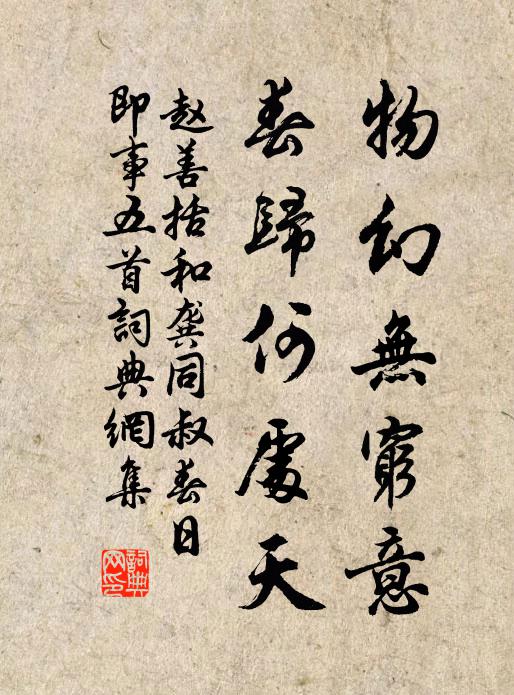 物幻無窮意
春歸何處天
赵善括和龔同叔春日
即事五首詞典網集
詞典
网印